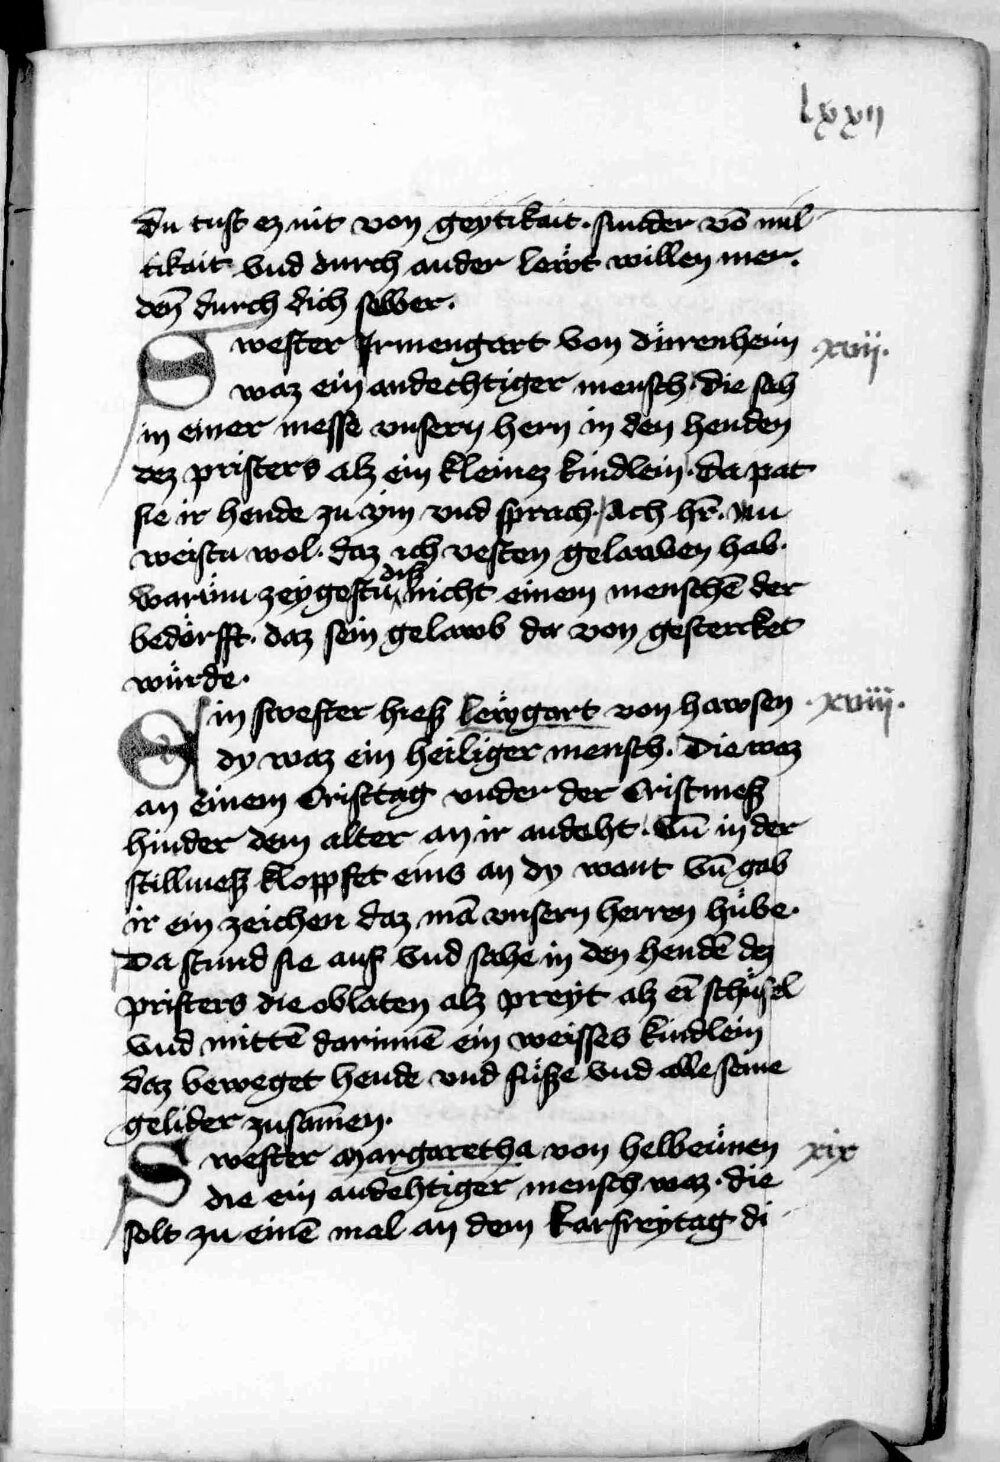 lxxii
du tust ez nit von geytikait. sunder võ mil
tikait vnd durch ander lewt willen mer.
deñ durch dich selber.
Swester Irmengart von dürenheim xvii.
waz ein andechtiger mensch. die sah
in einer messe vnsern hern in den henden
dez pristers alz ein kleinez kindlein. da pat
sie ir hende zu ẏm vnd sprach. Ach hr̄. nu
weistu wol. daz ich vesten gelawben hab.
warüm zeygestu dich nicht einem menschē der
bedörfft. daz sein gelawb da von gestercket
würde.
Ein swester hieß lewgart von hawsen .xviii.
dy waz ein heiliger mensch. Die waz
an einem Cristtag vnder der Cristmeß
hinder dem alter an ir andeht. Vñ in der
stillmeß kloppfet eins an dy want vñ gab
ir ein zeichen daz mā vnsern herren hübe.
Da stund sie auf vnd sahe in den hendē dez
pristers die oblaten alz preyt alz eī schüsel
vnd mittē darinnē ein weisses kindlein
daz beweget hende vnd füße vnd alle seine
gelider zusāmen.
Swester Margaretha von helbeünen xix
die ein andehtiger mensch waz. die
solt zu einē mal an dem karfreytag di